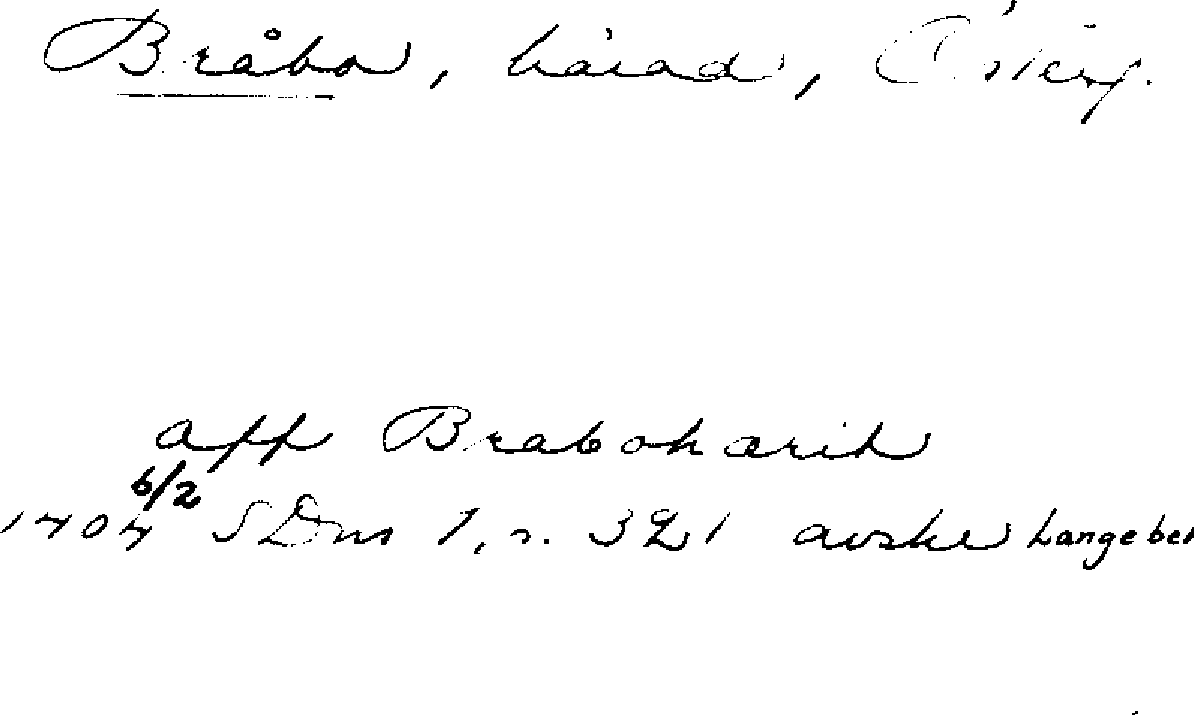 Bråbo, härad, Österg.
aff Brabohærith
6/2
1404 SDns 1, s. 321 avskr Langebek